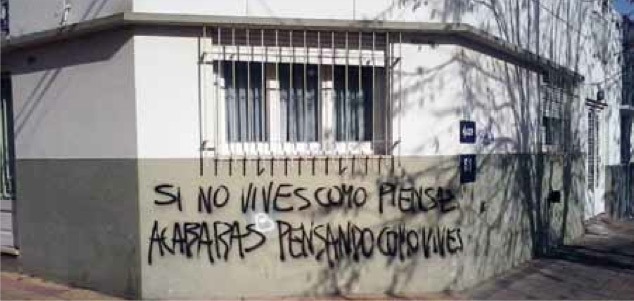 SI NO VIVES COMO PIENSAS
ACABARAS PENSANDO COMO VIVES